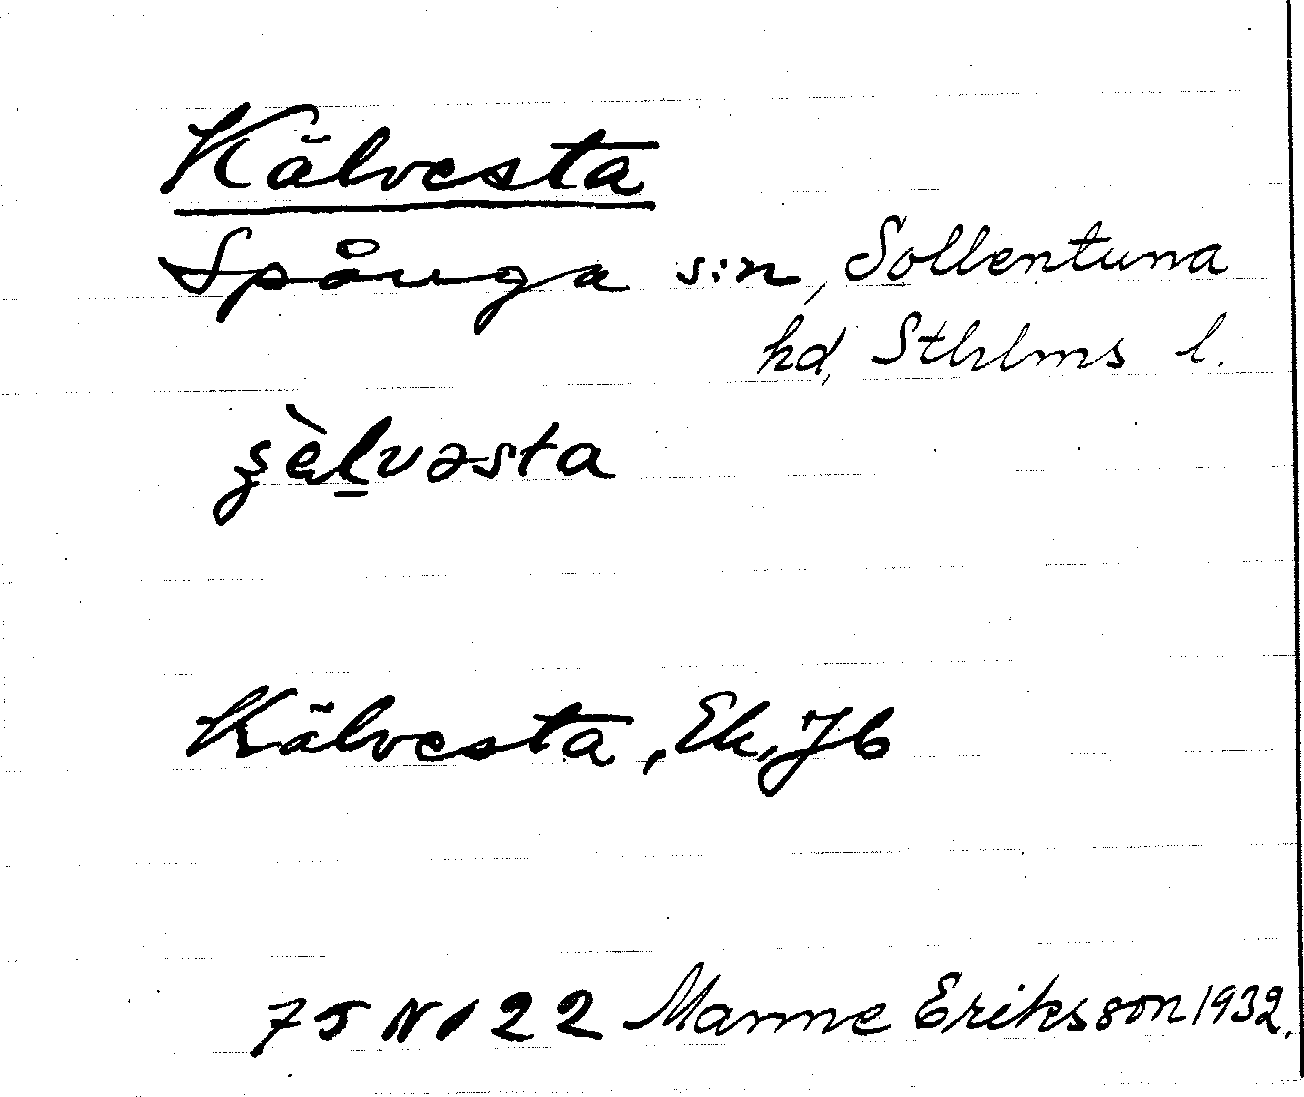 Kälvesta
Spånga s:n, Sollentuna
hd, Sthlms l.
Kälvesta, Ek, Jb
75 NV 22 Manne Eriksson 1932.